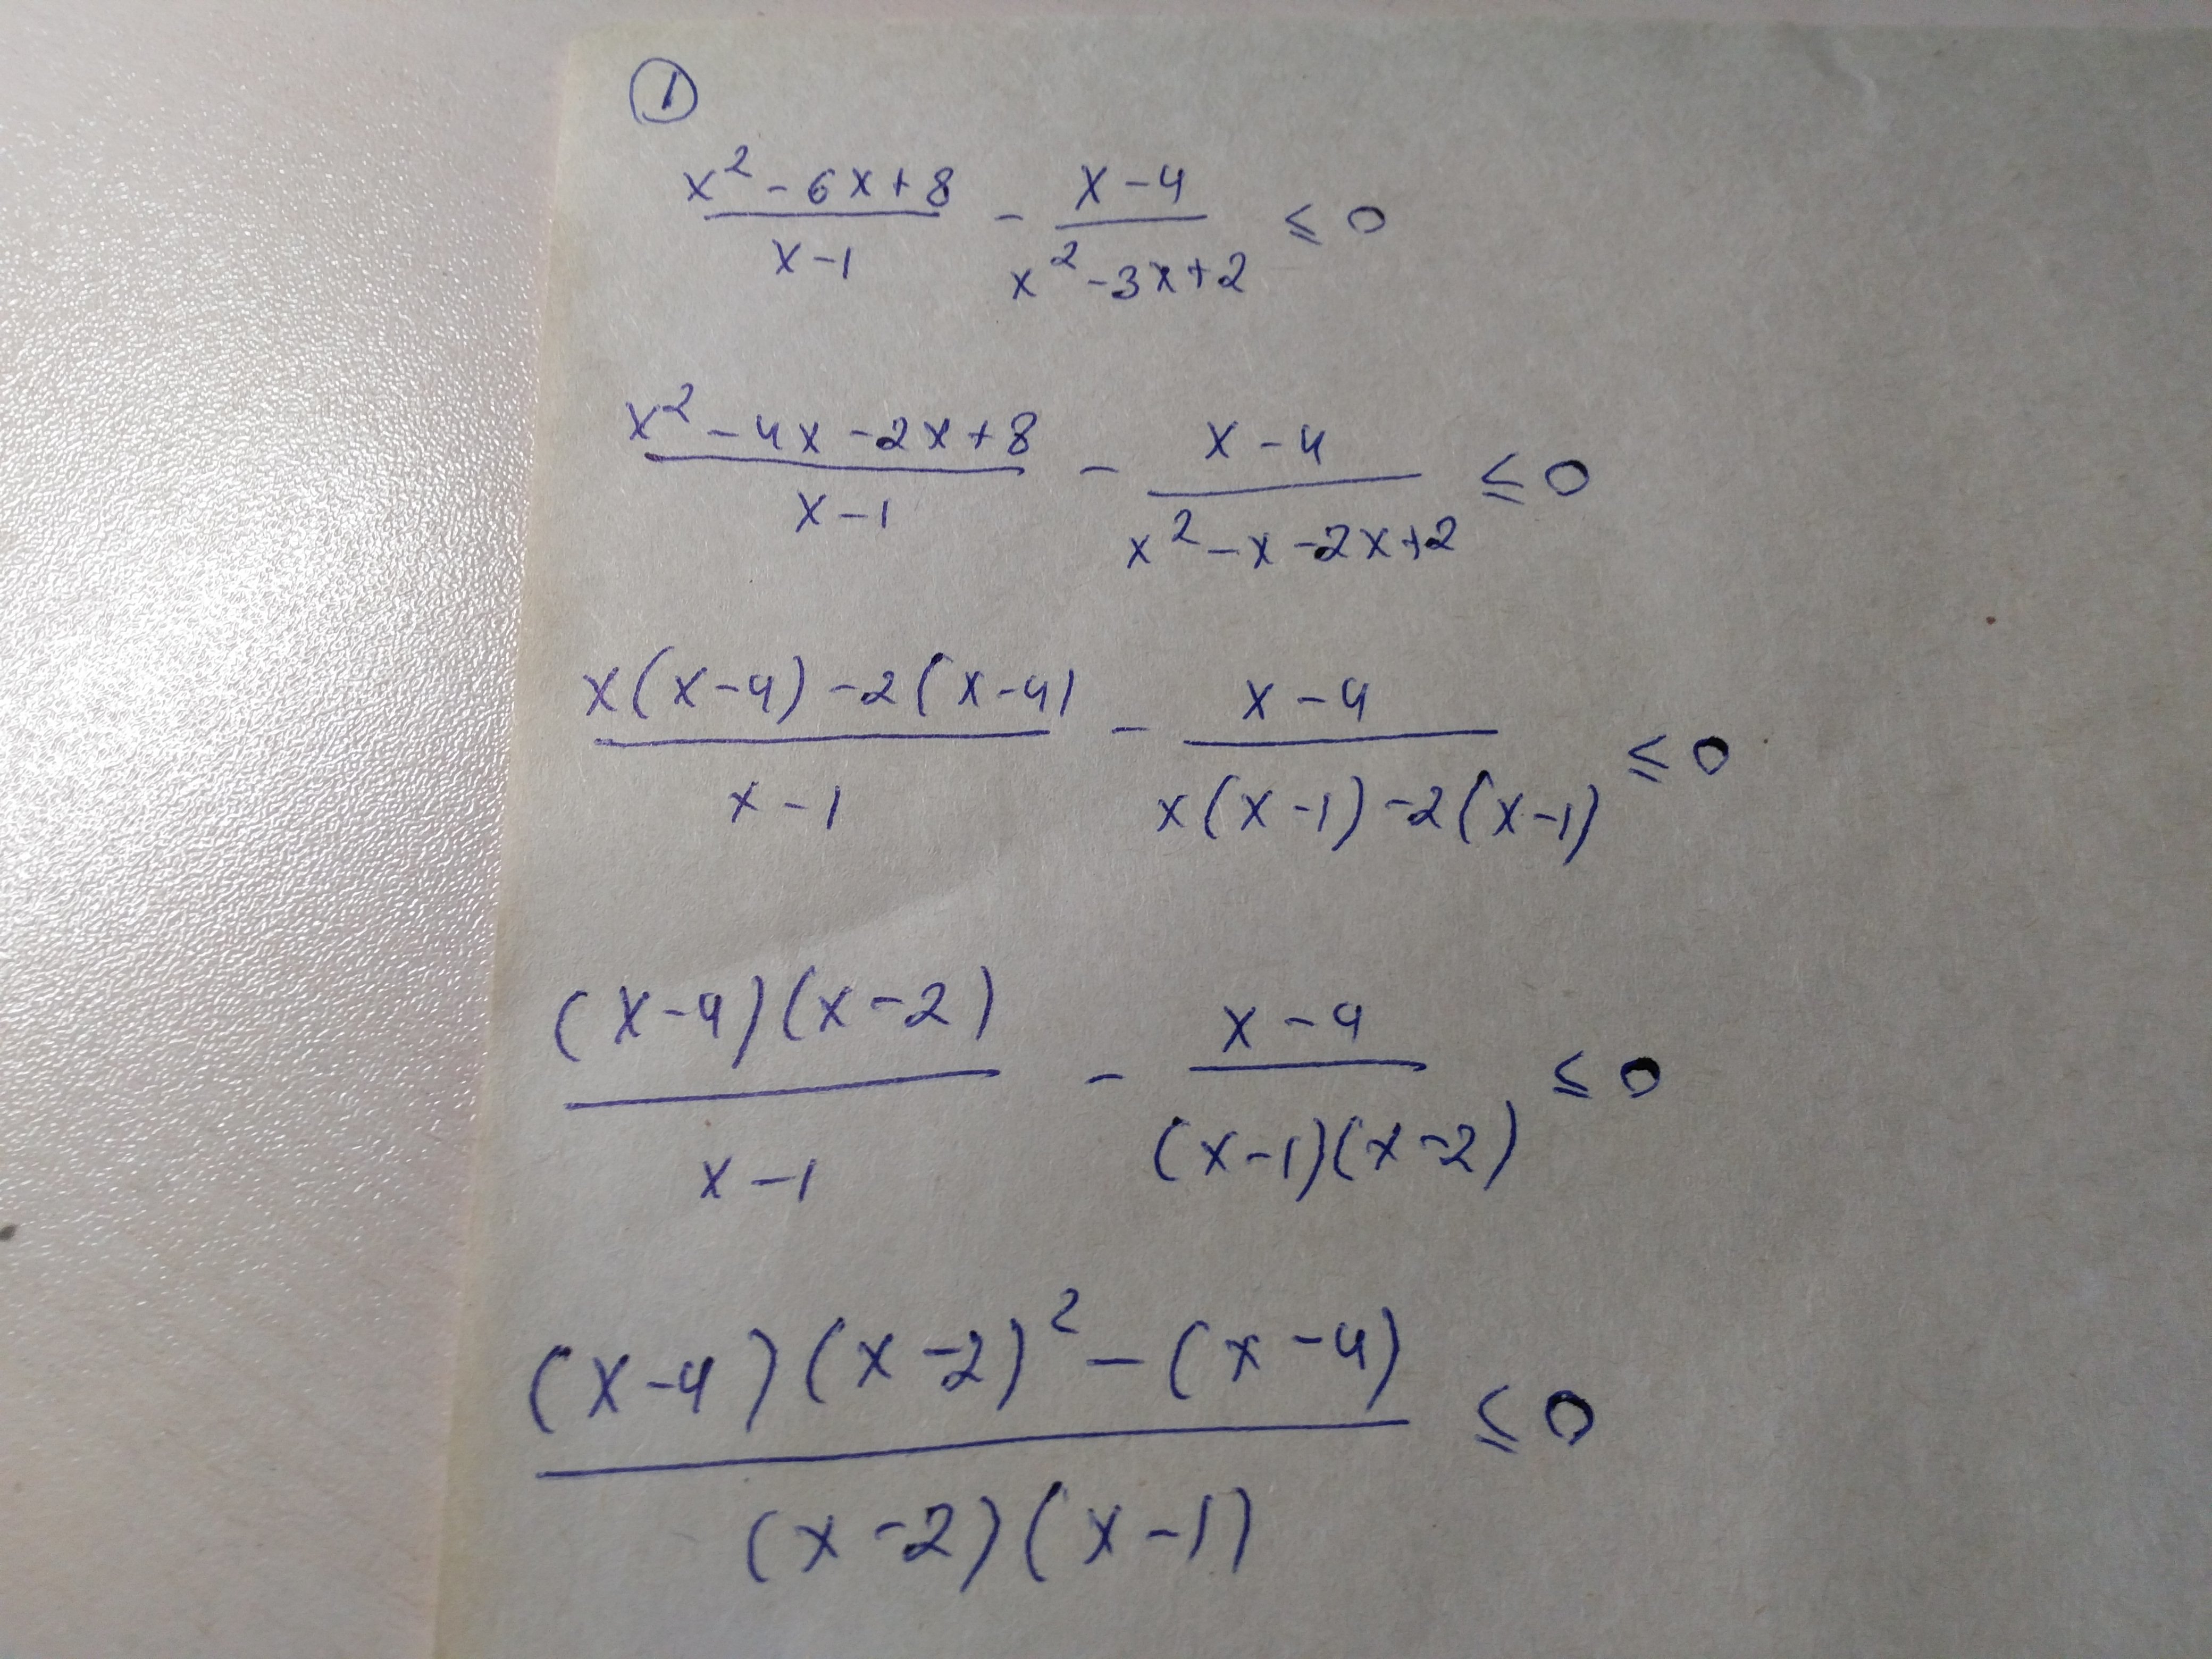 ①
(x² - 6x + 8)/(x - 1) - (x - 4)/(x² - 3x + 2) ≤ 0
(x² - 4x - 2x + 8)/(x - 1) - (x - 4)/(x² - x - 2x + 2) ≤ 0
(x(x - 4) - 2(x - 4))/(x - 1) - (x - 4)/(x(x - 1) - 2(x - 1)) ≤ 0
((x - 4)(x - 2))/(x - 1) - (x - 4)/((x - 1)(x - 2)) ≤ 0
((x - 4)(x - 2)² - (x - 4))/((x - 2)(x - 1)) ≤ 0